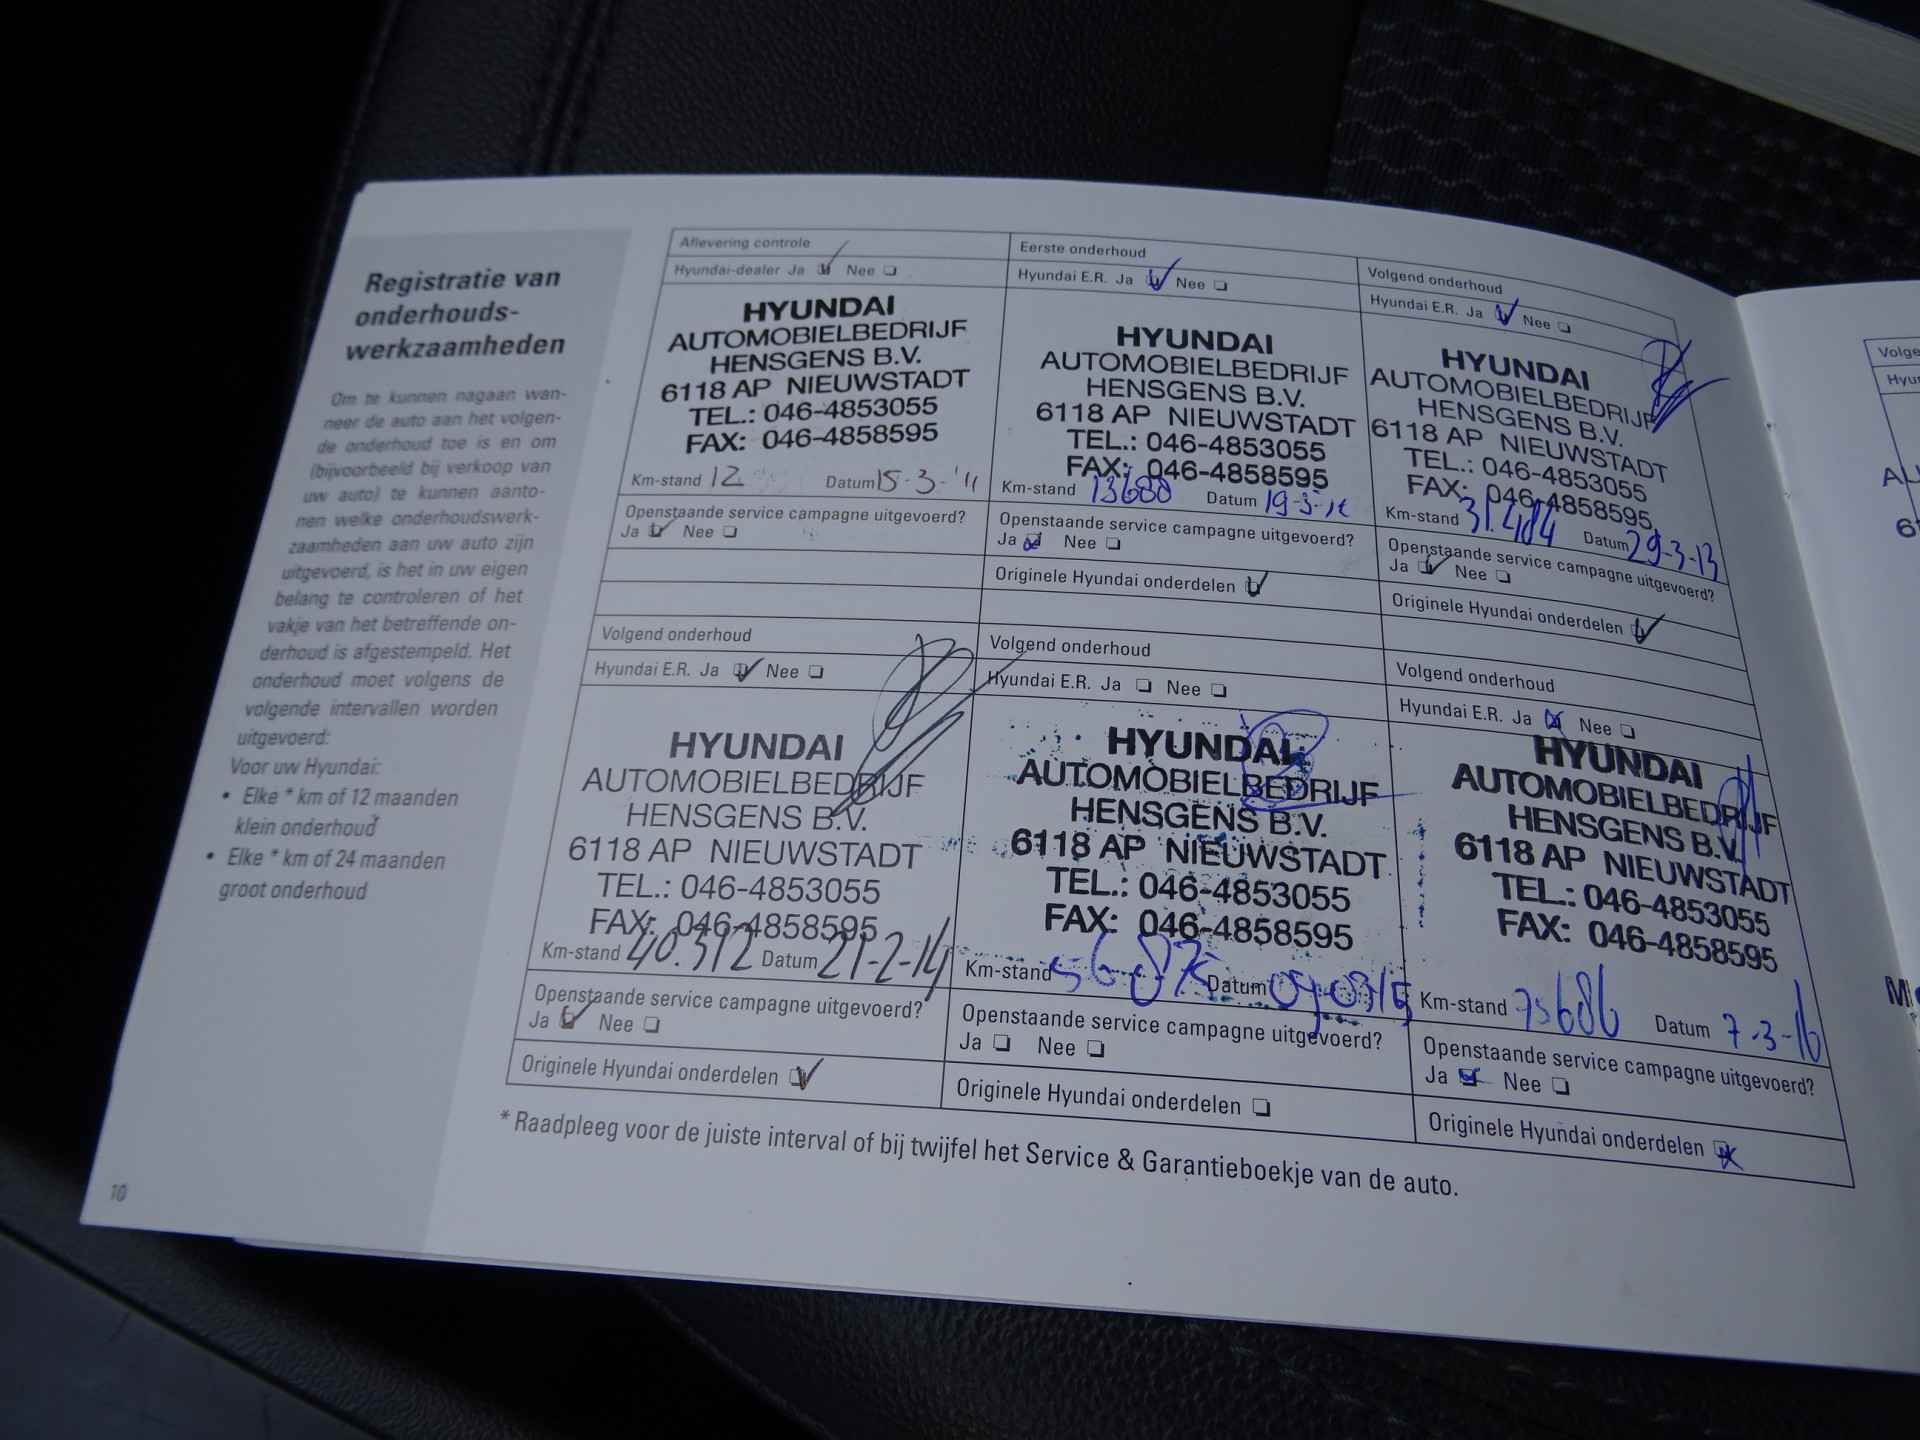 Registratie van
onderhouds-
werkzaamheden
Om te kunnen nagaan wan-
neer de auto aan het volgen-
de onderhoud toe is en om
(bijvoorbeeld bij verkoop van
uw auto) te kunnen aanto-
nen welke onderhoudswerk-
zaamheden aan uw auto zijn
uitgevoerd, is het in uw eigen
belang te controleren of het
vakje van het betreffende on-
derhoud is afgestempeld. Het
onderhoud moet volgens de
volgende intervallen worden
uitgevoerd:
Voor uw Hyundai:
• Elke * km of 12 maanden
klein onderhoud
• Elke * km of 24 maanden
groot onderhoud
10
Aflevering controle
Hyundai-dealer Ja Nee
HYUNDAI
AUTOMOBIELBEDRIJF
HENSGENS B.V.
6118 AP NIEUWSTADT
TEL.: 046-4853055
FAX: 046-4858595
Km-stand 12 Datum 15-3-'11
Openstaande service campagne uitgevoerd?
Ja Nee
Eerste onderhoud
Hyundai E.R. Ja Nee
HYUNDAI
AUTOMOBIELBEDRIJF
HENSGENS B.V.
6118 AP NIEUWSTADT
TEL.: 046-4853055
FAX: 046-4858595
Km-stand 13688 Datum
Openstaande service campagne uitgevoerd?
Ja Nee
Originele Hyundai onderdelen
Volgend onderhoud
Hyundai E.R. Ja Nee
HYUNDAI
AUTOMOBIELBEDRIJF
HENSGENS B.V.
6118 AP NIEUWSTADT
TEL.: 046-4853055
FAX: 046-4858595
Km-stand 31.484 Datum 29-3-13
Openstaande service campagne uitgevoerd?
Ja Nee
Originele Hyundai onderdelen
Volgend onderhoud
Hyundai E.R. Ja Nee
HYUNDAI
AUTOMOBIELBEDRIJF
HENSGENS B.V.
6118 AP NIEUWSTADT
TEL.: 046-4853055
FAX: 046-4858595
Km-stand 40.312 Datum 21-2-14
Openstaande service campagne uitgevoerd?
Ja Nee
Originele Hyundai onderdelen
Volgend onderhoud
Hyundai E.R. Ja Nee
HYUNDAI
AUTOMOBIELBEDRIJF
HENSGENS B.V.
6118 AP NIEUWSTADT
TEL.: 046-4853055
FAX: 046-4858595
Km-stand Datum
Openstaande service campagne uitgevoerd?
Ja Nee
Originele Hyundai onderdelen
Volgend onderhoud
Hyundai E.R. Ja Nee
HYUNDAI
AUTOMOBIELBEDRIJF
HENSGENS B.V.
6118 AP NIEUWSTADT
TEL.: 046-4853055
FAX: 046-4858595
Km-stand 75686 Datum 7-3-16
Openstaande service campagne uitgevoerd?
Ja Nee
Originele Hyundai onderdelen
* Raadpleeg voor de juiste interval of bij twijfel het Service & Garantieboekje van de auto.